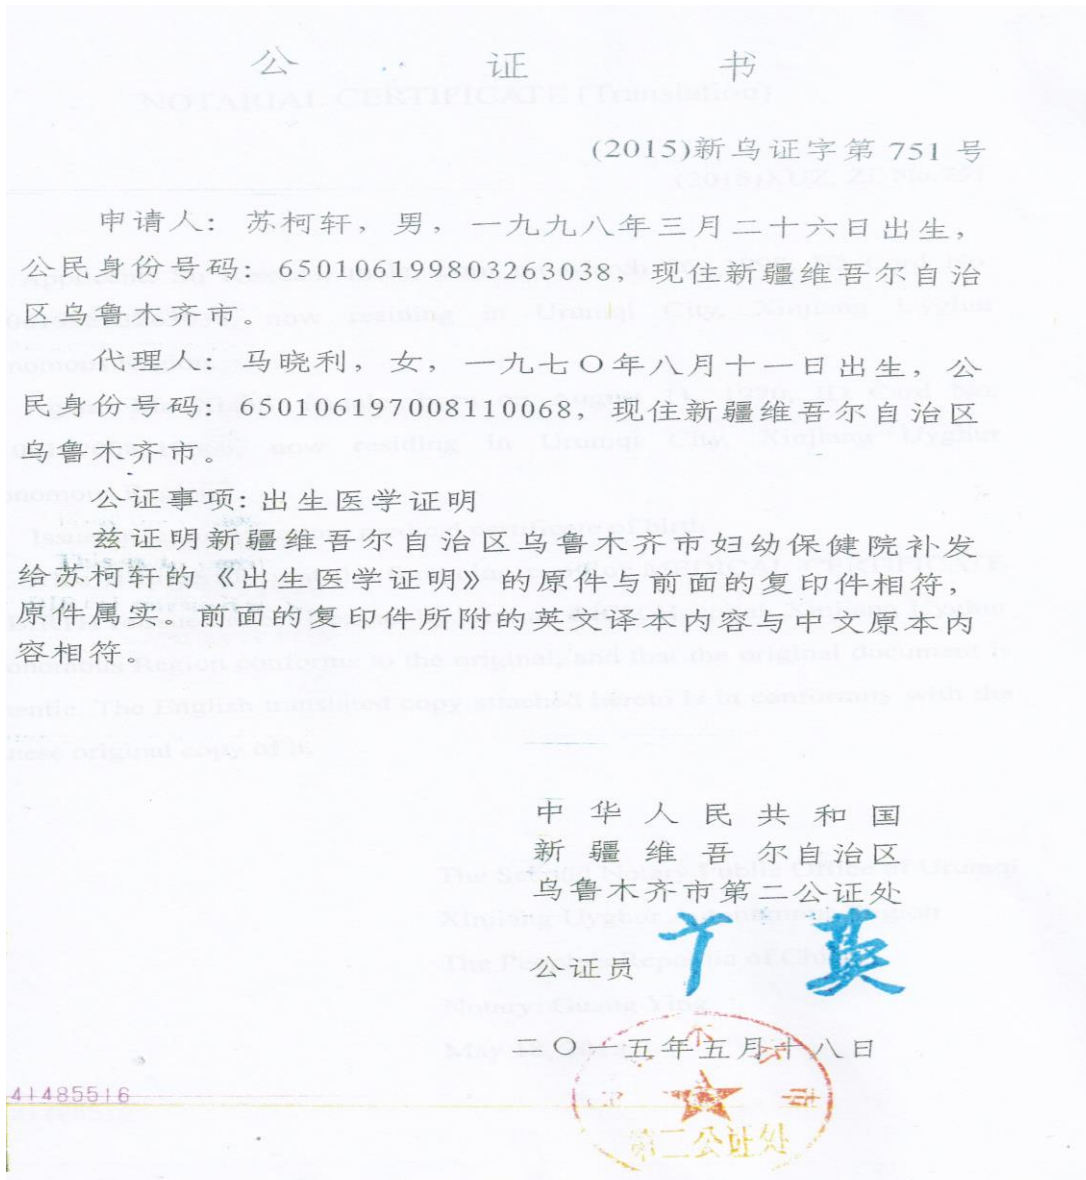 公证书
(2015)新乌证字第 751 号
申请人：苏柯轩，男，一九九八年三月二十六日出生，
公民身份号码：650106199803263038，现住新疆维吾尔自治
区乌鲁木齐市。
代理人：马晓利，女，一九七〇年八月十一日出生，公
民身份号码：650106197008110068，现住新疆维吾尔自治区
乌鲁木齐市。
公证事项：出生医学证明
兹证明新疆维吾尔自治区乌鲁木齐市妇幼保健院补发
给苏柯轩的《出生医学证明》的原件与前面的复印件相符，
原件属实。前面的复印件所附的英文译本内容与中文原本内
容相符。
中华人民共和国
新疆维吾尔自治区
乌鲁木齐市第二公证处
公证员
二〇一五年五月十八日
41485516
第二公证处